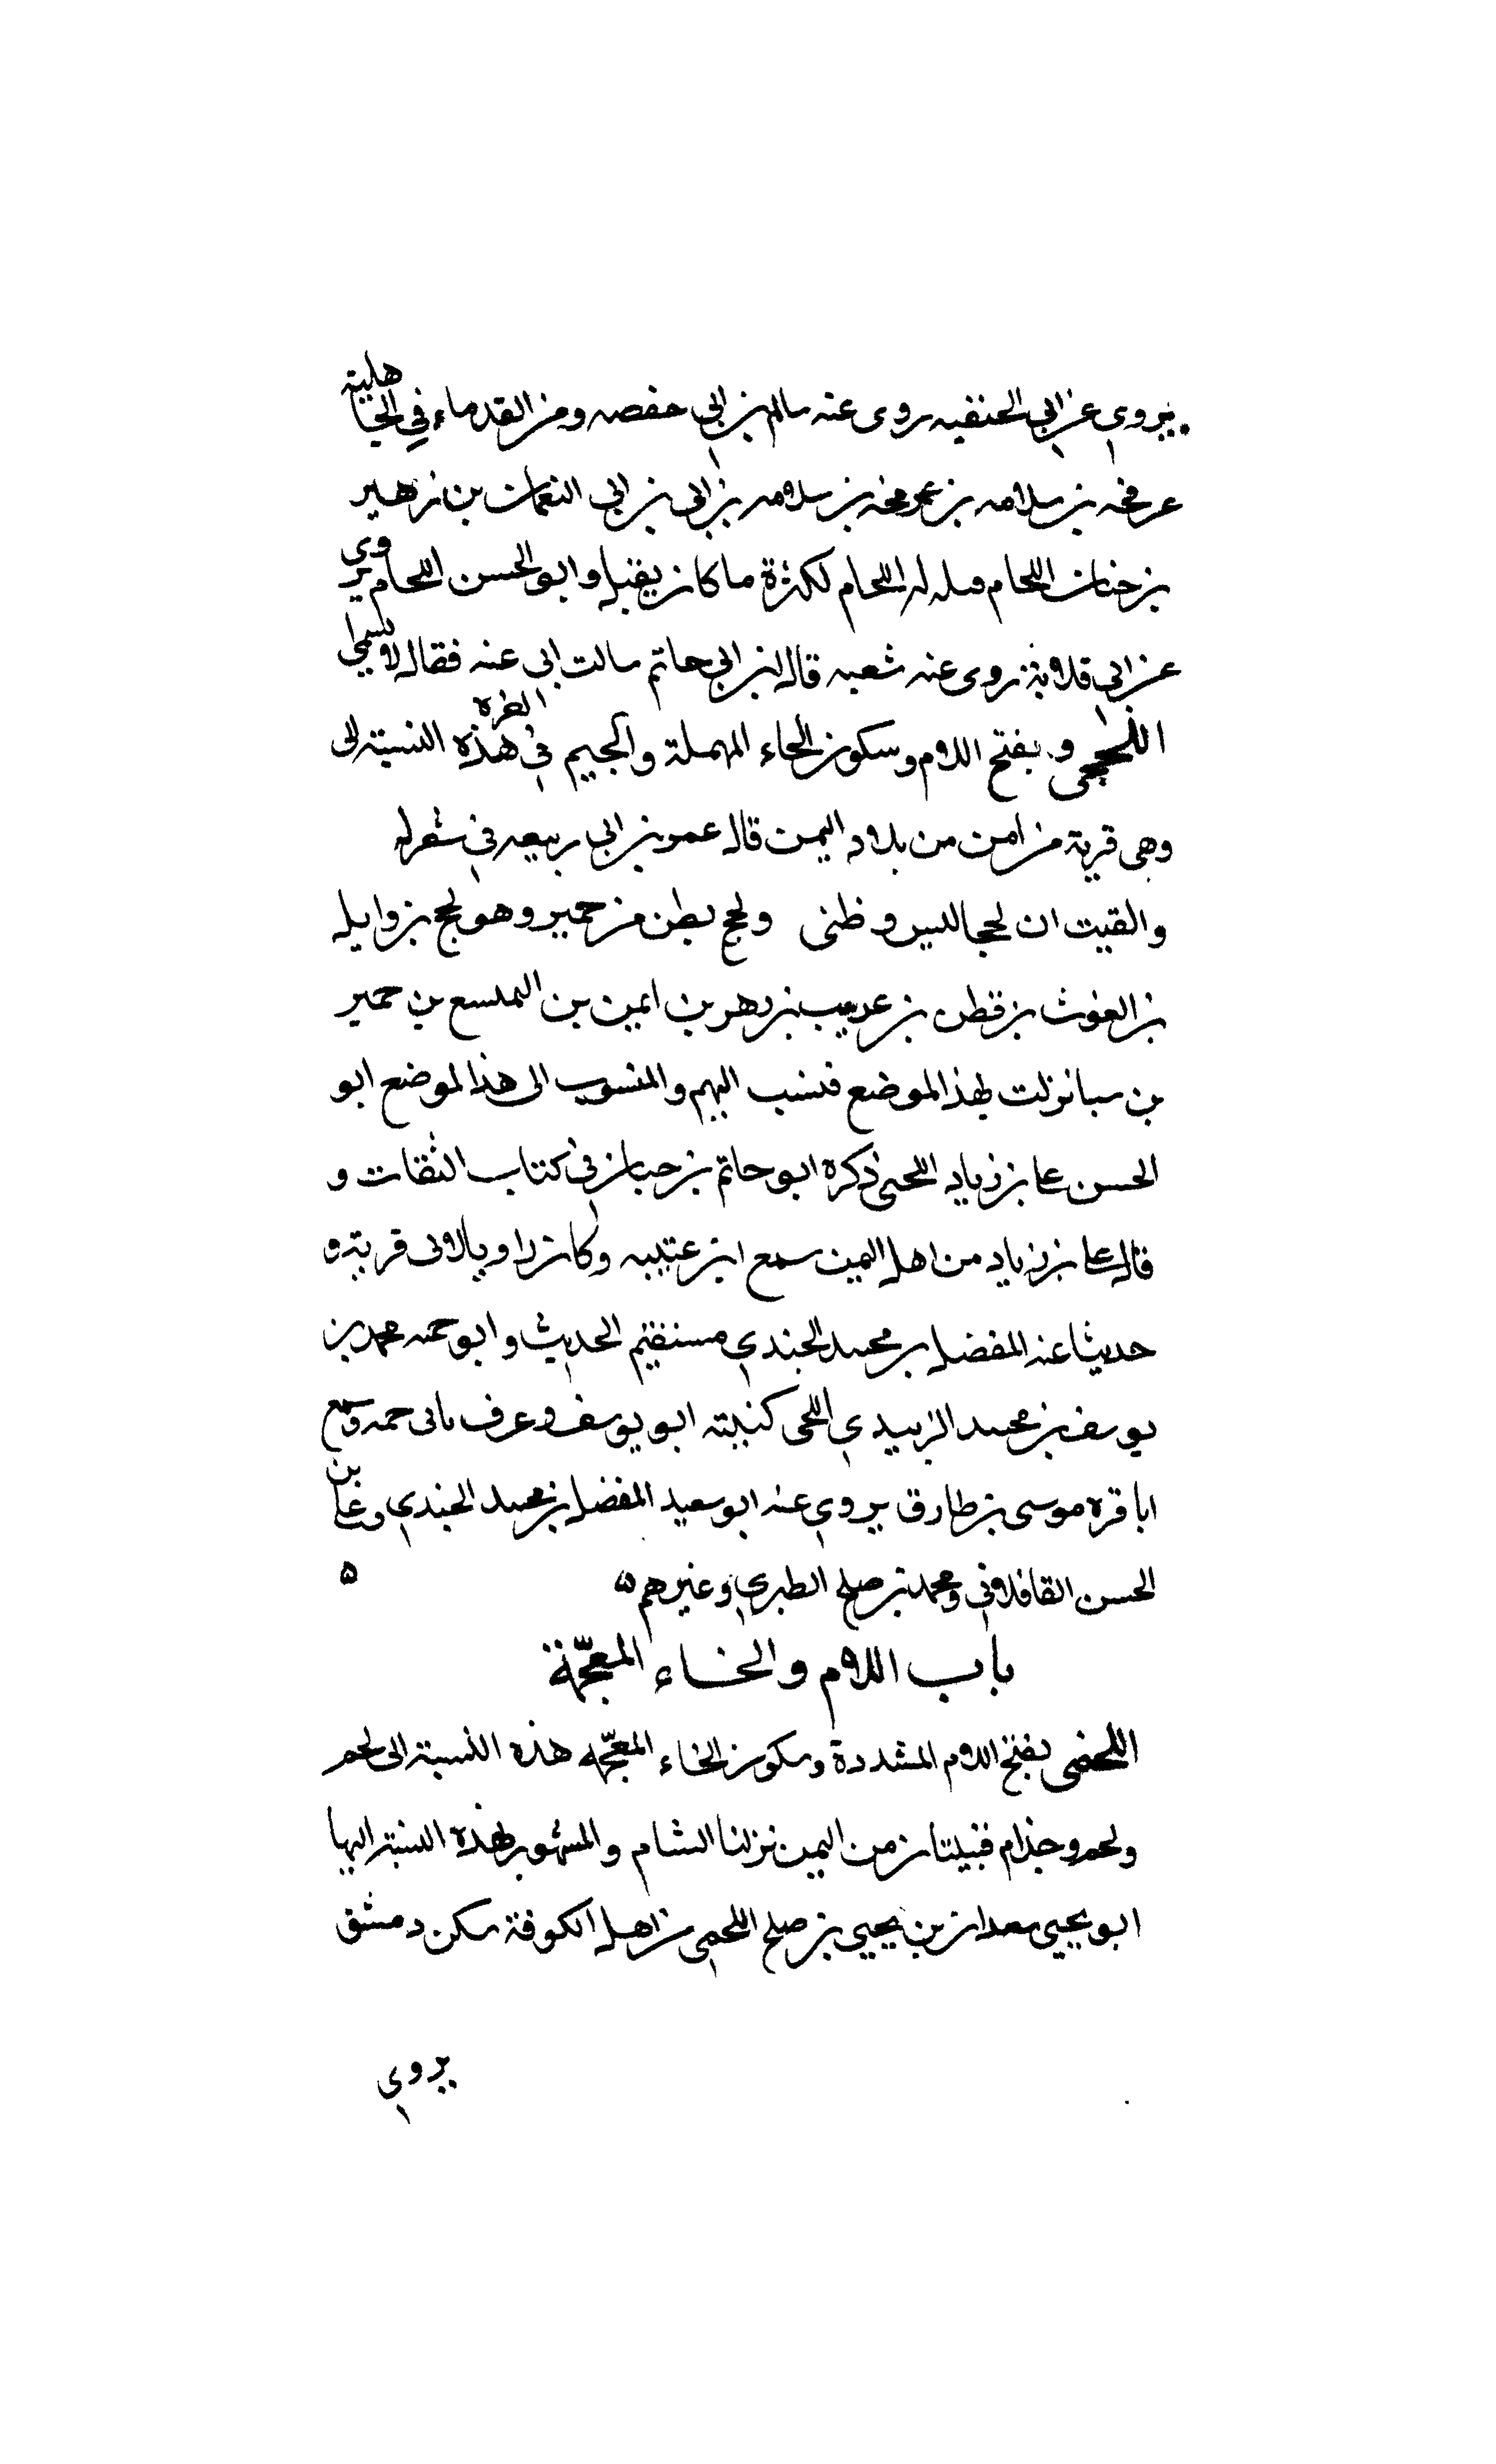 يروى عن ابى الحنفيه روى عنه سالم بن ابى حفصه ومن القدماء فى الجاهلية
عرفجه بن سلامه بن عرفجه بن سلامه بن ابى بن ابى النعمان بن زهير
بن جناب اللحام قيل له اللحام لكثرة ما كان يقتل وابو الحسن اللحام يروى
عن ابى قلابة روى عنه شعبه قال ابن ابى حاتم سالت ابى عنه فقال لا يسمى
اللحجى و بفتح اللام وسكون الحاء المهملة والجيم فى هذه النسبة الى
وهى قرية من ابين من بلاد اليمن قال عمر بن ابى ربيعه فى شعر له
والقيت ان لحجا ليس وظنى ولحج بطن من حمير وهو لحج بن وايل
بن الغوث بن قطن بن عريب بن زهر بن ايمن بن الهمسع بن حمير
بن سبا نزلت بهذا الموضع فنسب اليهم والمنسوب الى هذا الموضع ابو
الحسن على بن زياد اللحجى ذكره ابو حاتم بن حبان فى كتاب الثقات و
قال على بن زياد من اهل اليمن سمع ابن عتيبه وكان راويا لابى قرية و
حدثنا عنه المفضل بن محمد الجندي مستقيم الحديث وابو حمه محمد بن
يوسف بن محمد الزبيدي اللحجى كنيته ابو يوسف وعرف بابى حمه وسمع
ابا قره موسى بن طارق يروي عنه ابو سعيد المفضل بن محمد الجندي وعلى بن
الحسن القافلانى ومحمد بن صلح الطبري وغيرهم ه ه
باب اللام والخاء المعجمة
اللخمى بفتح اللام المشددة وسكون الخاء المعجمه هذه النسبة الى لخم
ولخم وجذام قبيلتان من اليمن نزلتا الشام والمشهور بهذه النسبة اليها
ابو يحيى سعدان بن يحيى بن صلح اللخمى من اهل الكوفة سكن دمشق
يروي